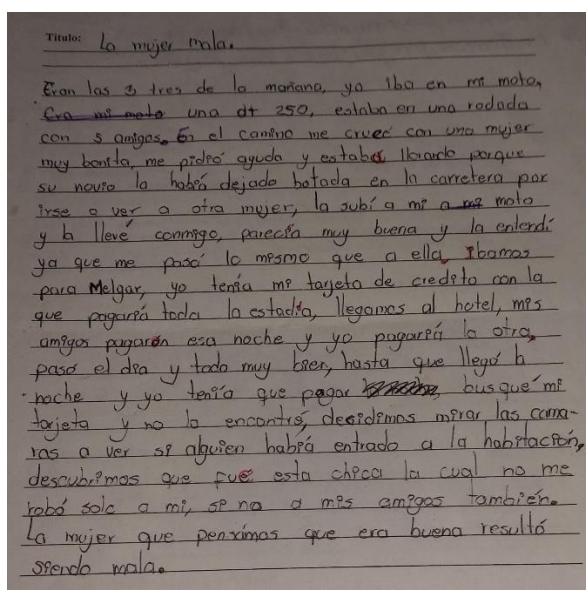 Titulo: La mujer mala.
Eran las 3 tres de la mañana, yo iba en mi moto,
Era mi moto una dt 250, estaba en una rodada
con 5 amigos. En el camino me crucé con una mujer
muy bonita, me pidió ayuda y estaba llorando porque
su novio la había dejado botada en la carretera por
irse a ver a otra mujer, la subí a mi a mi moto
y la llevé conmigo, parecía muy buena y la entendí
ya que me pasó lo mismo que a ella, Ibamos
para Melgar, yo tenía mi tarjeta de credito con la
que pagaría toda la estadía, llegamos al hotel, mis
amigos pagarón esa noche y yo pagaría la otra,
pasó el dia y todo muy bien, hasta que llegó la
noche y yo tenía que pagar, busqué mi
tarjeta y no la encontré, decidimos mirar las cama-
ras a ver si alguien había entrado a la habitación,
descubrimos que fue esta chica la cual no me
robó solo a mi, si no a mis amigos también.
La mujer que penximas que era buena resultó
siendo mala.